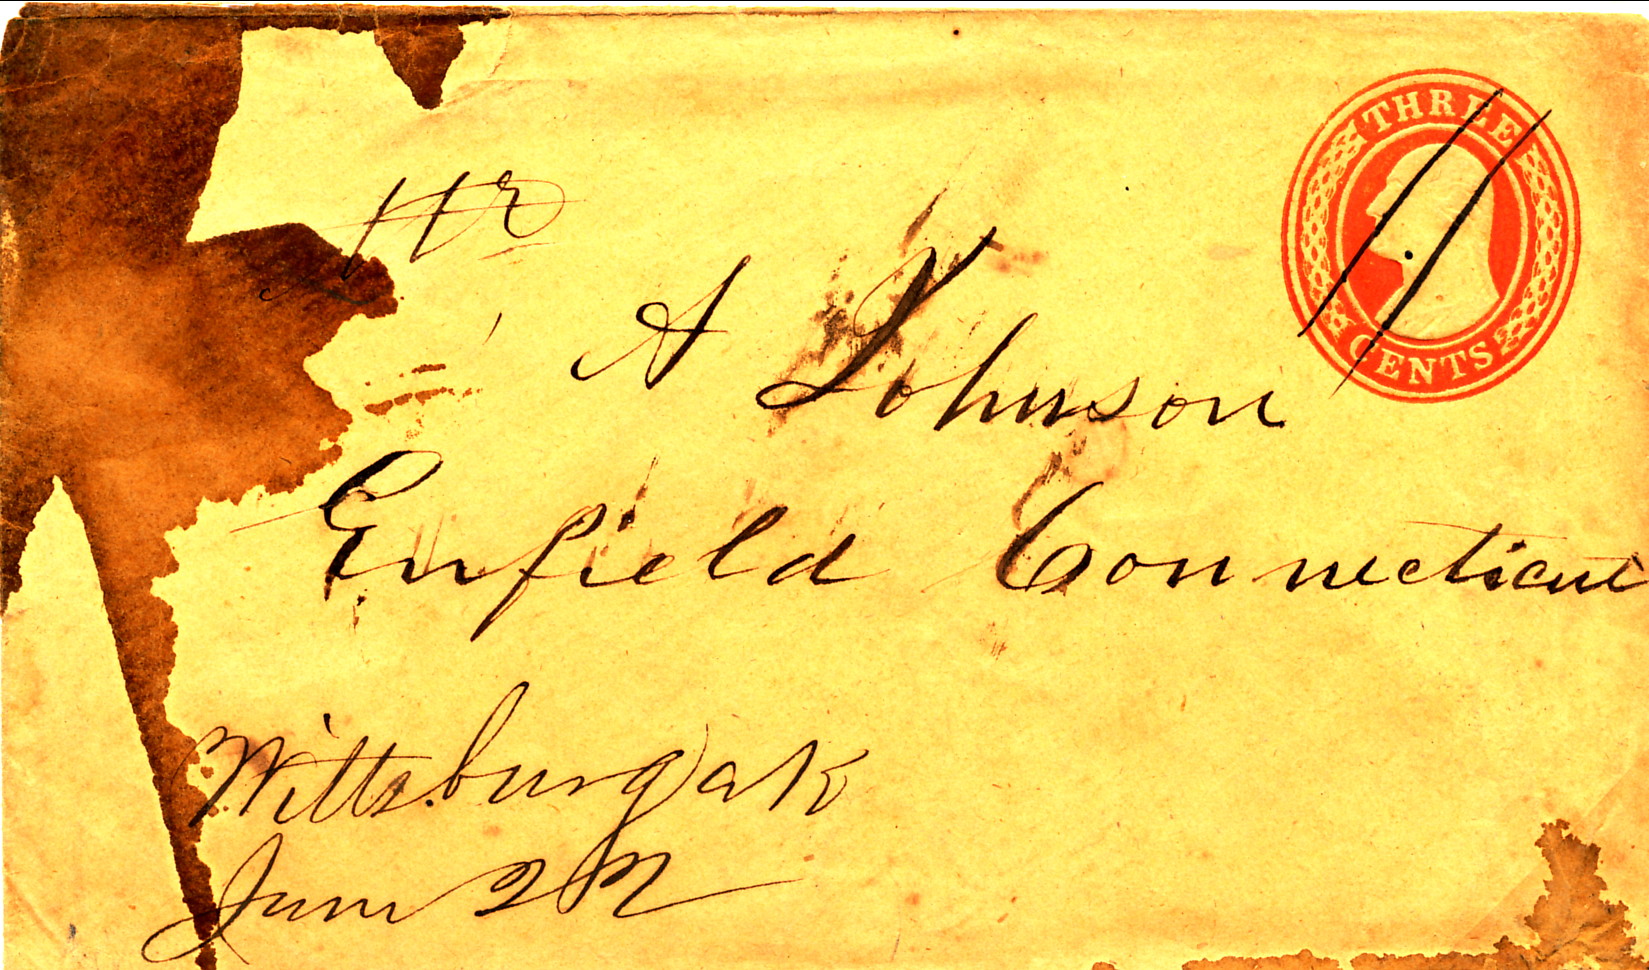 THREE
CENTS
Mr
A Johnson
Enfield Connecticut
Wittsburg ak
June